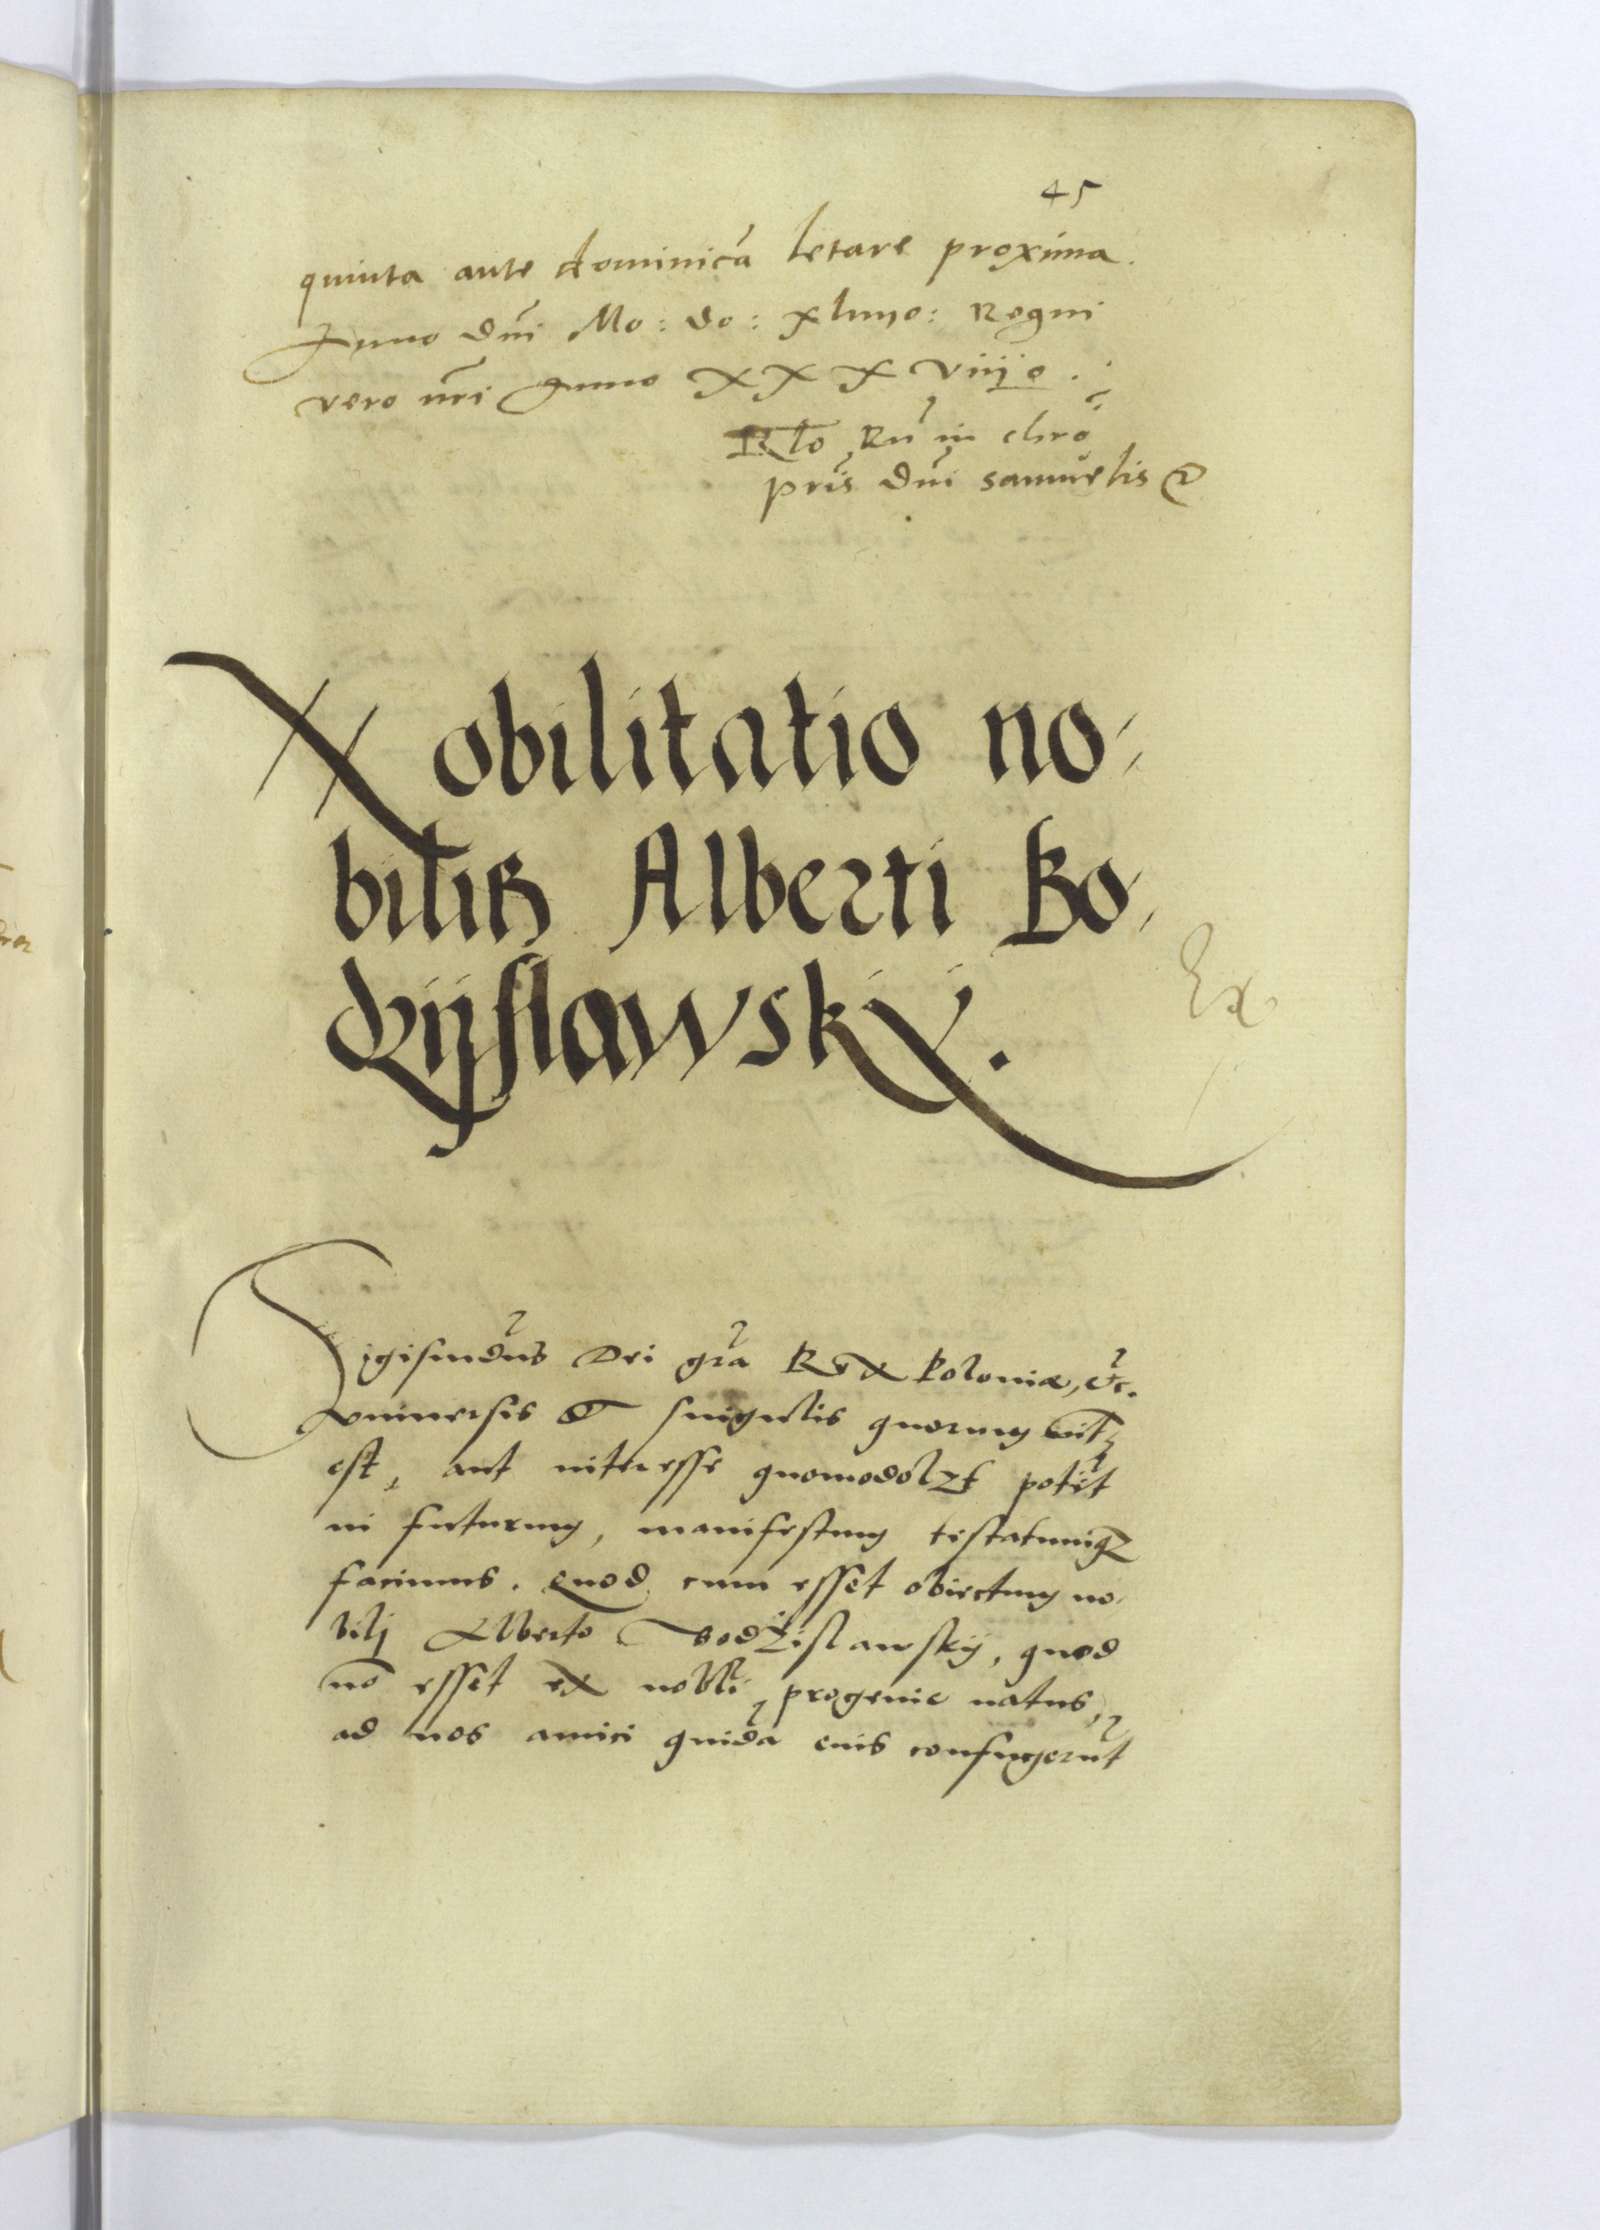 45
quinta ante dominicā letare proxima.
Anno dn̄i Mo: do: xlmo: Regni
vero nr̄i Anno XXX viiijo.
Rlo Rn̄ in chrō
pris̄ dn̄i samuelis
Nobilitatio no-
bilis Alberti Bo-
dzijslawskÿ.
Ex
Sigismūdus Dei gr̄a Rex Poloniæ, etc.
vniuersis & singulis quorum int
est, aut interesse quomodolz poterit
in futurum, manifestum testatumq
facimus. Quod cum esset obiectum no-
bilj Alberto Bodzislawskÿ, quod
nō esset ex nobli progenie natus,
ad nos amici quidā euis confugerūt